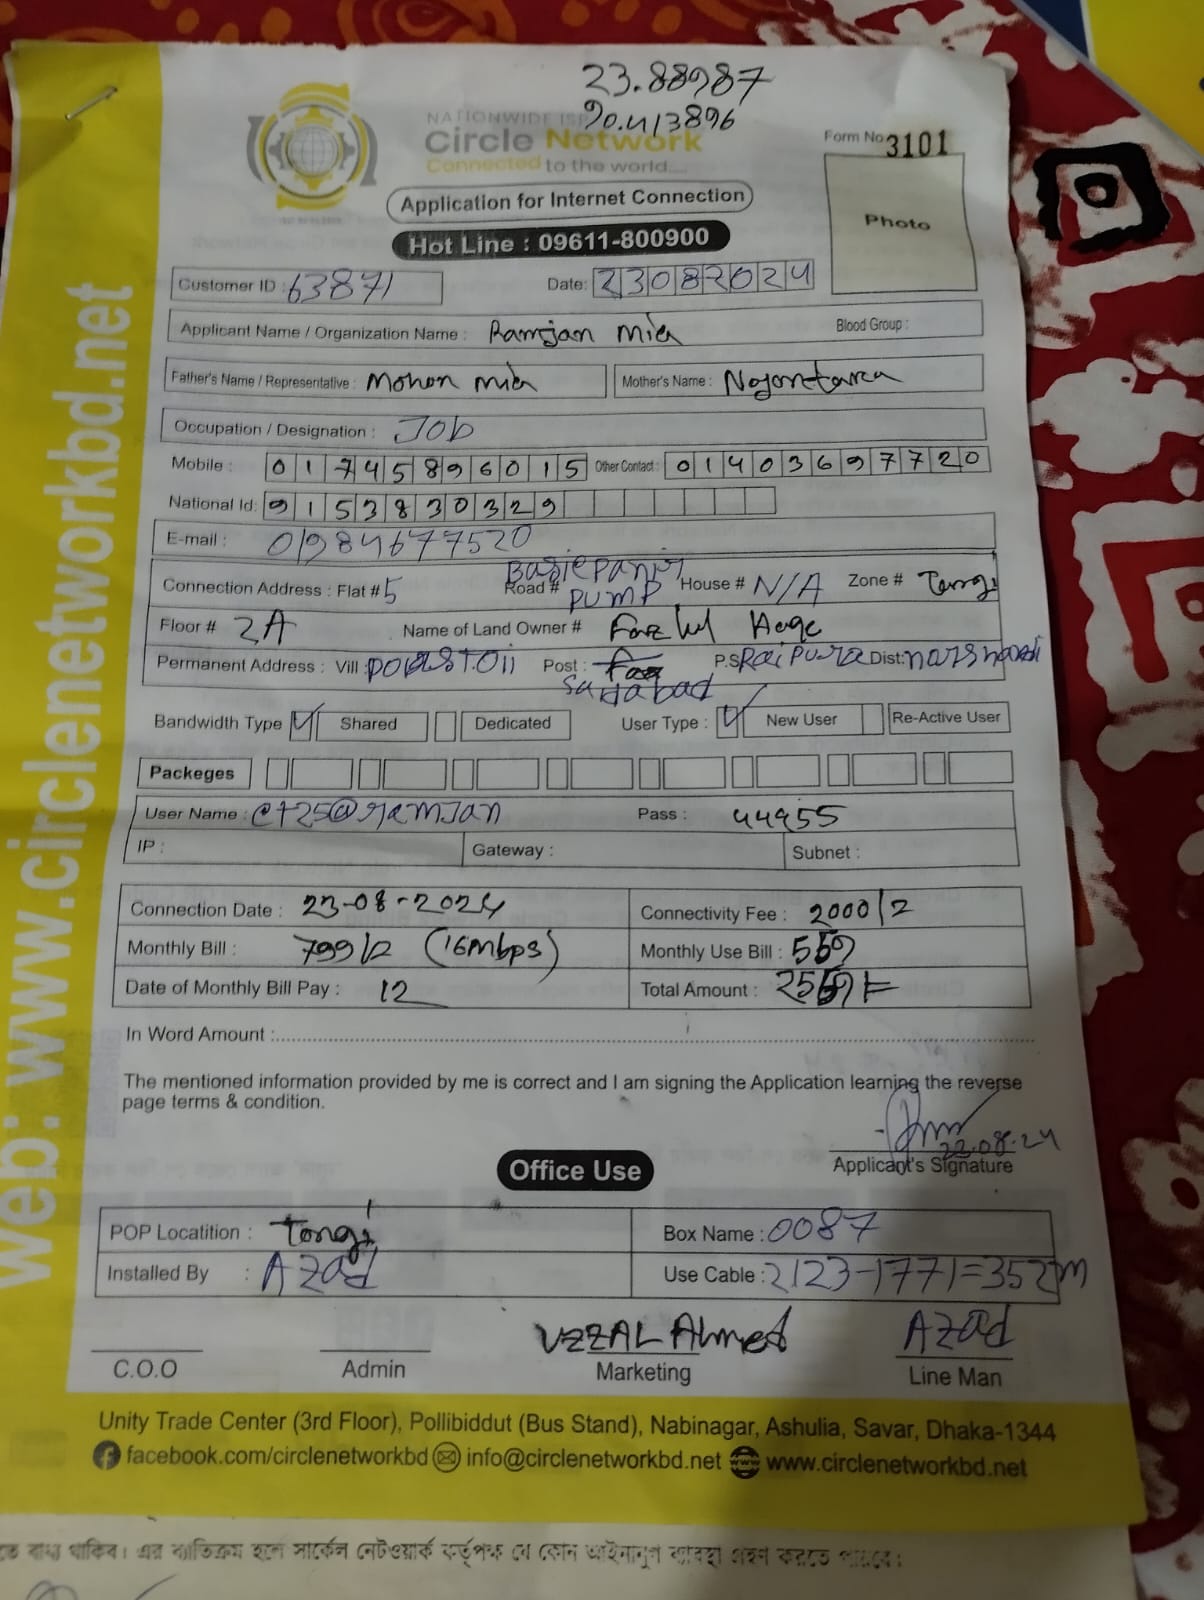 23.88987
90.413896
NATIONWIDE ISP
Circle Network
Connected to the world....
Form No 3101
Application for Internet Connection
Photo
Hot Line : 09611-800900
Customer ID : 63871 Date: 23082024
Applicant Name / Organization Name : Ramjan mia Blood Group :
Father's Name / Representative : Mohon mia Mother's Name : Nojontara
Occupation / Designation : Job
Mobile : 01745896015 Other Contact : 01403697720
National Id: 9153830329
E-mail : 01984677520
Connection Address : Flat # 5 Road # PUMP House # N/A Zone # Tongi
Floor # 2A Name of Land Owner # Fazlul Haqe
Permanent Address : Vill Post : P.S Raipura Dist: narshondi
Bandwidth Type Shared Dedicated User Type : New User Re-Active User
Packeges
User Name : ct25@ramJan Pass : 44955
IP : Gateway : Subnet :
Connection Date : 23-08-2024 Connectivity Fee : 2000/2
Monthly Bill : 799/2 (16mbps) Monthly Use Bill :
Date of Monthly Bill Pay : 12 Total Amount :
In Word Amount :
The mentioned information provided by me is correct and I am signing the Application learning the reverse
page terms & condition.
23.08.24
Applicant's Signature
Office Use
POP Locatition : Tongi Box Name : 0087
Installed By : Azad Use Cable : 2123-1771=352m
UZZAL Ahmed Azad
C.O.O Admin Marketing Line Man
Unity Trade Center (3rd Floor), Pollibiddut (Bus Stand), Nabinagar, Ashulia, Savar, Dhaka-1344
facebook.com/circlenetworkbd info@circlenetworkbd.net www.circlenetworkbd.net
web: www.circlenetworkbd.net
বাধ্য থাকিব। এর ব্যতিক্রম হলে সার্কেল নেটওয়ার্ক কর্তৃপক্ষ যে কোন আইনানুগ ব্যবস্থা গ্রহণ করতে পারবে।